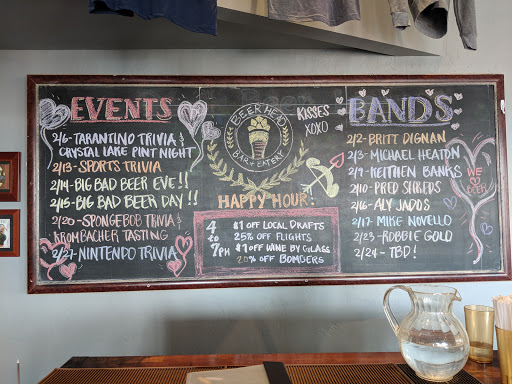 EVENTS
2/6-TARANTINO TRIVIA &
CRYSTAL LAKE PINT NIGHT
2/13-SPORTS TRIVIA
2/14-BIG BAD BEER EVE!!
2/15-BIG BAD BEER DAY!!
2/20-SPONGEBOB TRIVIA &
KROMBACHER TASTING
2/27-NINTENDO TRIVIA
BEERHEAD
BAR & EATERY
KISSES
XOXO
HAPPY HOUR!
4 to 7PM
$1 OFF LOCAL DRAFTS
25% OFF FLIGHTS
$1 OFF WINE BY GLASS
20% OFF BOMBERS
BANDS
2/2-BRITT DIGNAN
2/3-MICHAEL HEATON
2/9-KEITHEN BANKS
2/10-PRED SHREDS
2/16-ALY JADOS
2/17-MIKE NOVELLO
2/23-ROBBIE GOLD
2/24-TBD!
WE
BEER